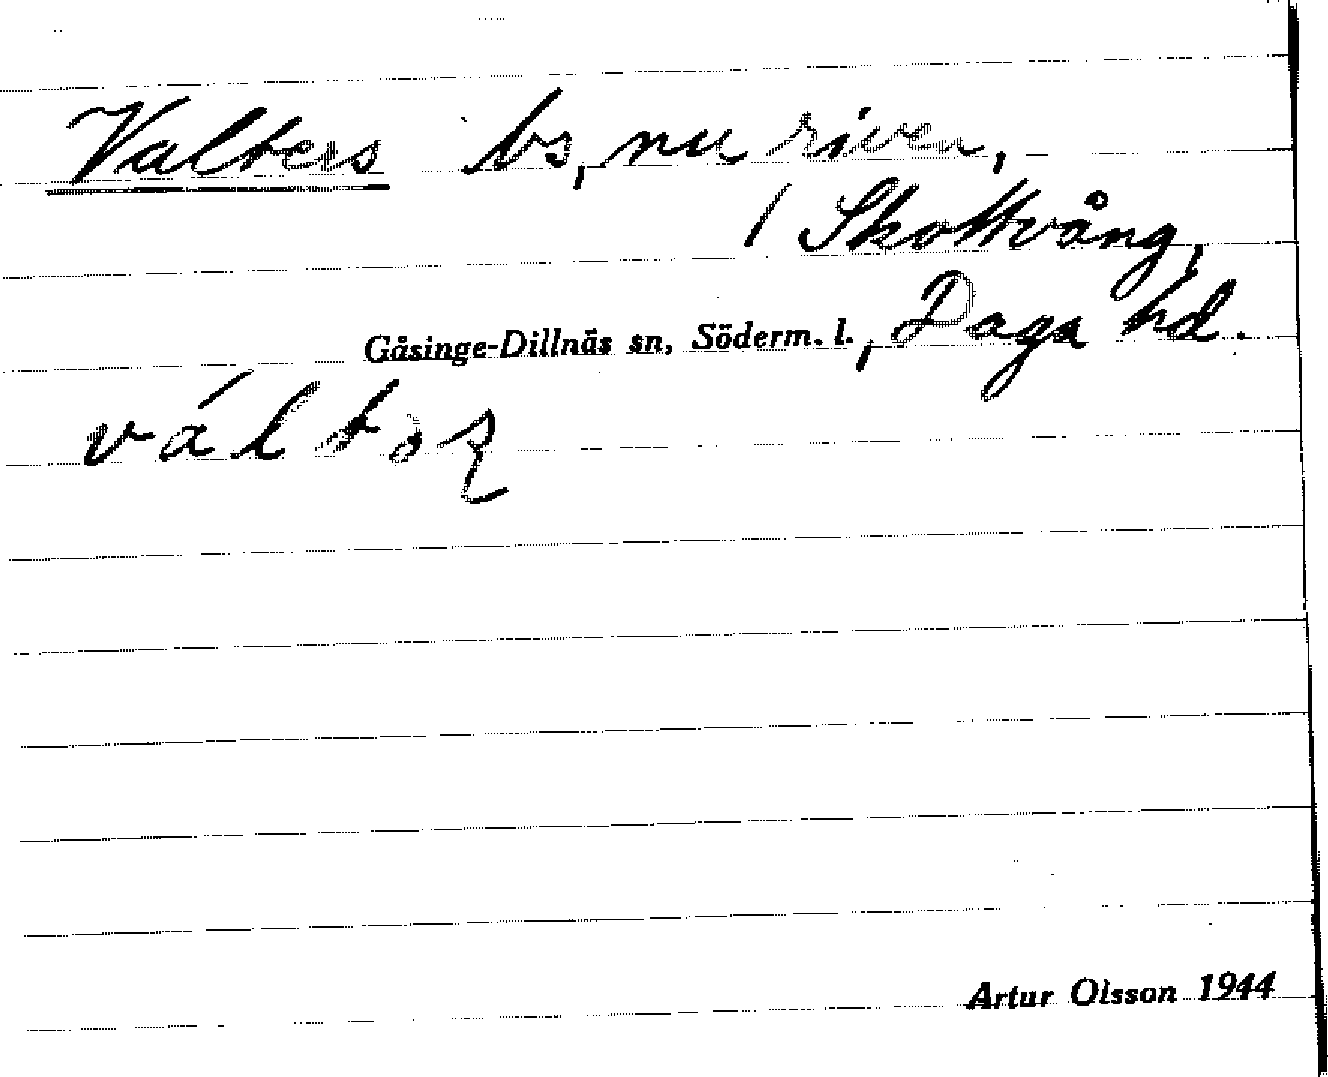 Valters bs, nu riven,
/ Skottvång,
Gåsinge-Dillnäs sn, Söderm. l., Daga hd.
Artur Olsson 1944